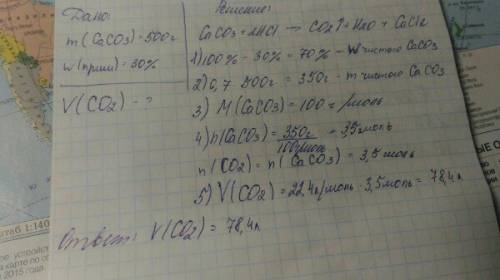 Дано:
m(CaCO3)=500г
w(прим)=30%
V(CO2) - ?
Решение:
CaCO3+2HCl → CO2↑+H2O + CaCl2
1) 100% - 30% = 70% - W чистого CaCO3
2) 0,7 · 500г = 350г - m чистого CaCO3
3) M(CaCO3) = 100г/моль
4) n(CaCO3) = 350г / 100г/моль = 3,5моль
n(CO2) = n(CaCO3) = 3,5 моль
5) V(CO2) = 22,4л/моль · 3,5моль = 78,4л
Ответ: V(CO2) = 78,4л
таб 1:140
2015 года.